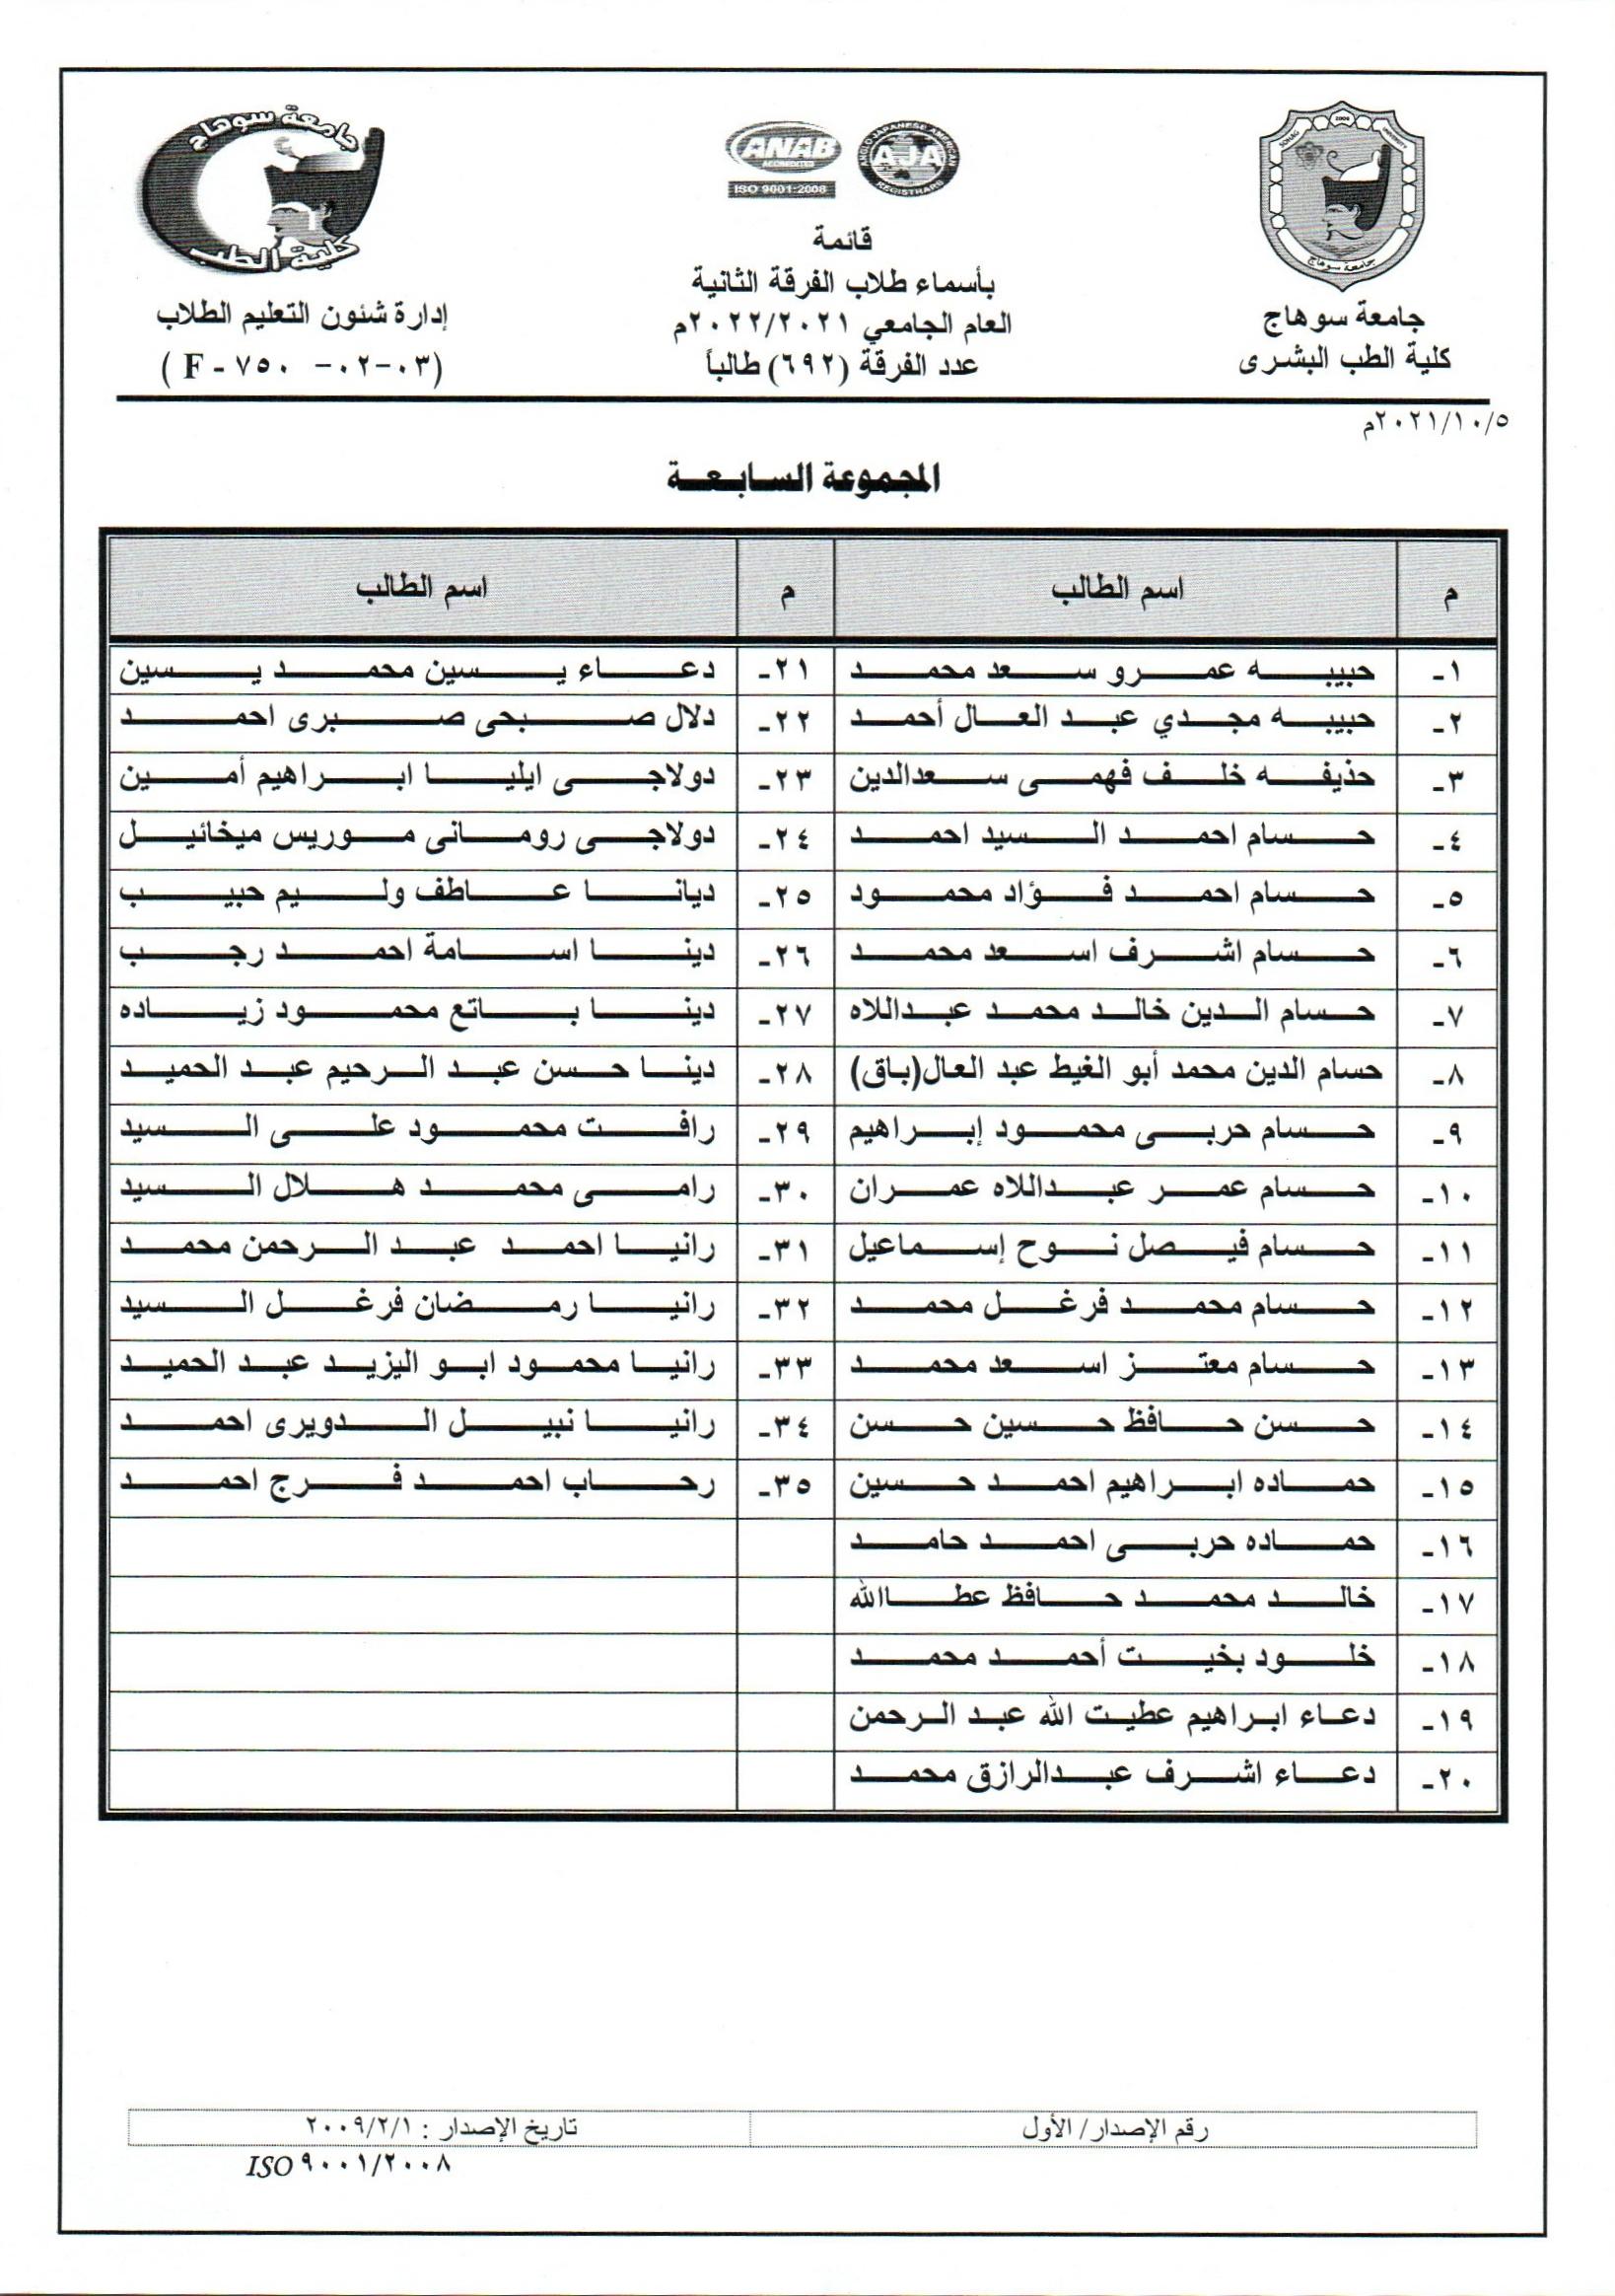 جامعة سوهاج
كلية الطب
ANAB
ACCREDITED
ISO 9001:2008
ANGLO JAPANESE AMERICAN
AJA
REGISTRARS
SOHAG 2006 UNIVERSITY
جامعة سوهاج
جامعة سوهاج
كلية الطب البشرى
قائمة
بأسماء طلاب الفرقة الثانية
العام الجامعي ٢٠٢٢/٢٠٢١م
عدد الفرقة (٦٩٢) طالباً
إدارة شئون التعليم الطلاب
(F - ٧٥٠ -٠٢-٠٣)
٢٠٢١/١٠/٥م
المجموعة السابعة
م اسم الطالب م اسم الطالب
١- حبيبه عمرو سعد محمد ٢١- دعاء يسين محمد يسين
٢- حبيبه مجدي عبد العال أحمد ٢٢- دلال صبحى صبرى احمد
٣- حذيفه خلف فهمى سعدالدين ٢٣- دولاجى ايليا ابراهيم أمين
٤- حسام احمد السيد احمد ٢٤- دولاجى رومانى موريس ميخائيل
٥- حسام احمد فؤاد محمود ٢٥- ديانا عاطف وليم حبيب
٦- حسام اشرف اسعد محمد ٢٦- دينا اسامة احمد رجب
٧- حسام الدين خالد محمد عبداللاه ٢٧- دينا باتع محمود زياده
٨- حسام الدين محمد أبو الغيط عبد العال(باق) ٢٨- دينا حسن عبد الرحيم عبد الحميد
٩- حسام حربى محمود إبراهيم ٢٩- رافت محمود على السيد
١٠- حسام عمر عبداللاه عمران ٣٠- رامى محمد هلال السيد
١١- حسام فيصل نوح إسماعيل ٣١- رانيا احمد عبد الرحمن محمد
١٢- حسام محمد فرغل محمد ٣٢- رانيا رمضان فرغل السيد
١٣- حسام معتز اسعد محمد ٣٣- رانيا محمود ابو اليزيد عبد الحميد
١٤- حسن حافظ حسين حسن ٣٤- رانيا نبيل الدويرى احمد
١٥- حماده ابراهيم احمد حسين ٣٥- رحاب احمد فرج احمد
١٦- حماده حربى احمد حامد
١٧- خالد محمد حافظ عطاالله
١٨- خلود بخيت أحمد محمد
١٩- دعاء ابراهيم عطيت الله عبد الرحمن
٢٠- دعاء اشرف عبدالرازق محمد
رقم الإصدار/ الأول تاريخ الإصدار : ٢٠٠٩/٢/١
ISO ٩٠٠١/٢٠٠٨